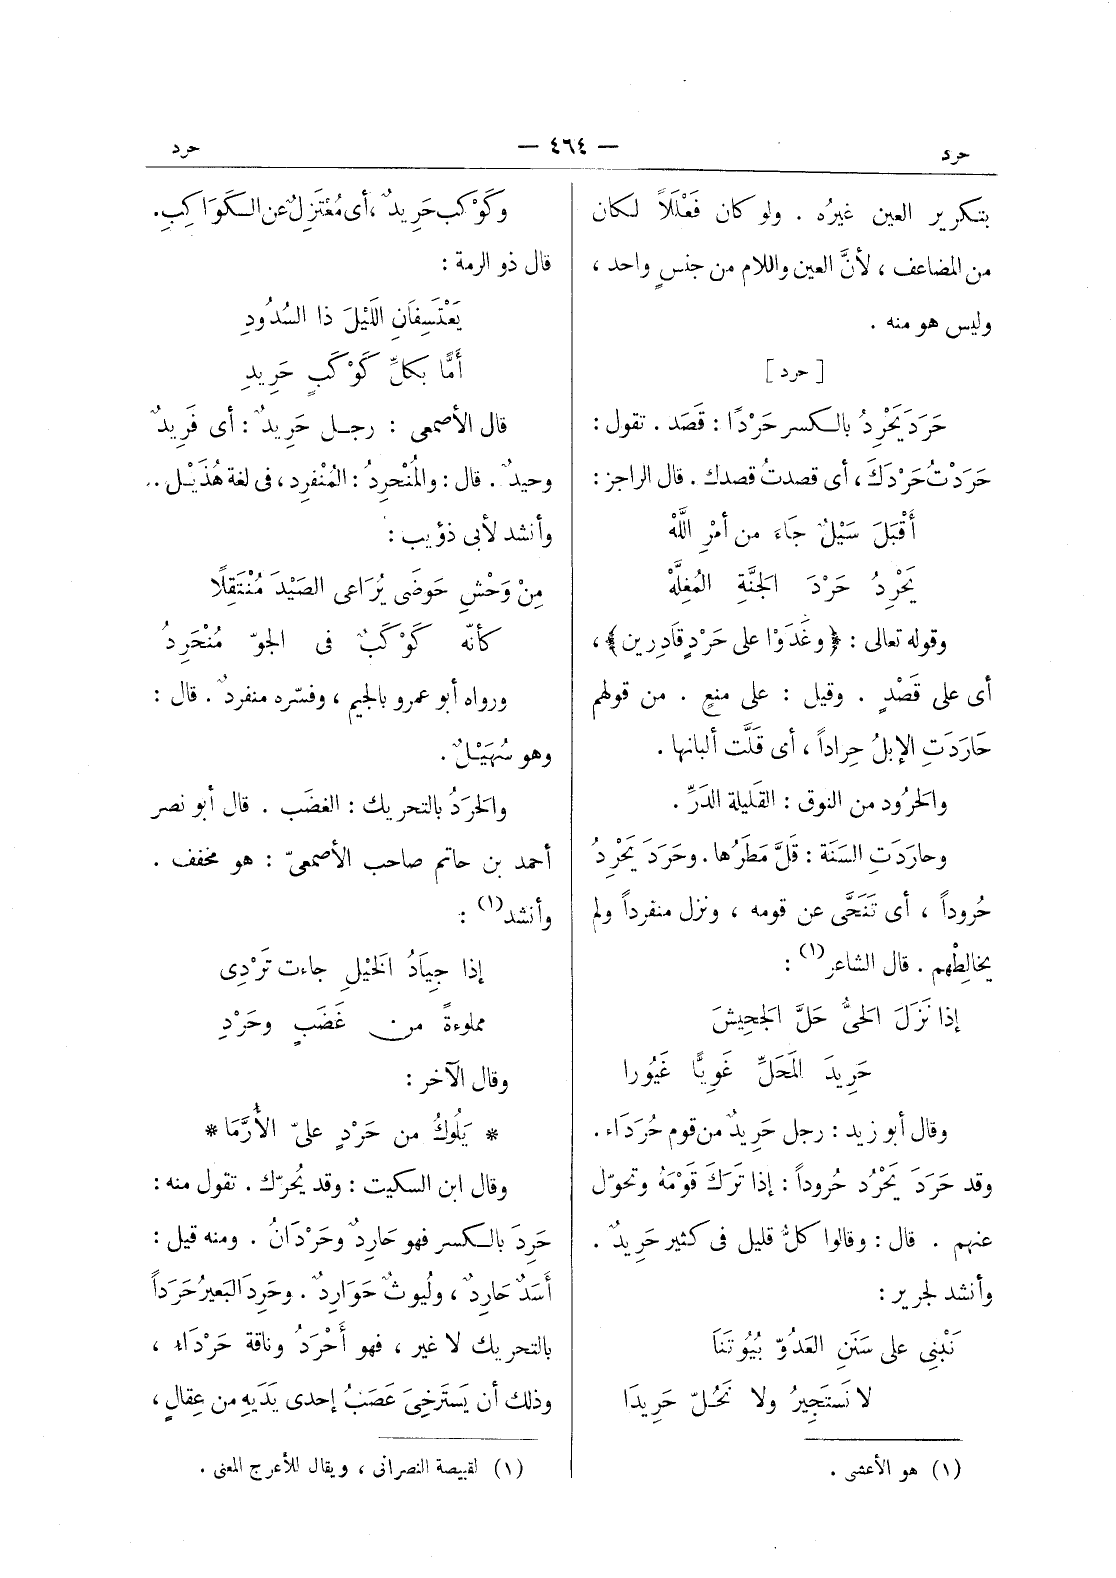 حرد — ٤٦٤ — حرد
بتكرير العين غيرُه . ولو كان فَعْلَلاً لكان
من المضاعف ، لأنَّ العين واللام من جنسٍ واحد ،
وليس هو منه .
[ حرد ]
حَرَدَ يَحْرِدُ بالكسر حَرْدًا : قَصَد . تقول :
حَرَدْتُ حَرْدَكَ ، أى قصدتُ قصدك . قال الراجز :
أَقْبَلَ سَيْلٌ جَاءَ من أمْرِ اللَّهْ
يَحْرِدُ حَرْدَ الجنَّةِ المُغِلَّهْ
وقوله تعالى : ﴿وغَدَوْا على حَرْدٍ قادِرين﴾ ،
أى على قَصْدٍ . وقيل : على منعٍ . من قولهم
حَارَدَتِ الإبلُ حِراداً ، أى قَلَّت ألبانها .
والحَرُود من النوق : القَليلة الدَرِّ .
وحارَدَتِ السَنَة : قَلَّ مَطَرُها . وحَرَدَ يَحْرِدُ
حُروداً ، أى تَنَحَّى عن قومه ، ونزل منفرداً ولم
يخالِطْهم . قال الشاعر (١) :
إذا نَزَلَ الحىُّ حَلَّ الجَحِيشَ
حَرِيدَ المَحَلِّ غَوِيًّا غَيُورا
وقال أبو زيد : رجل حَرِيدٌ من قوم حُرَدَاء .
وقد حَرَدَ يَحْرُد حُروداً : إذا تَرَكَ قَوْمَهُ وتحوّل
عنهم . قال : وقالوا كلُّ قليل فى كثير حَرِيدٌ .
وأنشد لجرير :
نَبْنِى على سَنَنِ العَدُوّ بُيُوتَنَا
لا نَستَجِيرُ ولا نَحُلّ حَرِيدَا
(١) هو الأعشى .
وكَوْكب حَرِيدٌ ، أى مُعْتَزِلٌ عن الكَوَاكِبِ .
قال ذو الرمة :
يَعْتَسِفَانِ اللَيْلَ ذا السُدُودِ
أَمًّا بكلِّ كَوْكَبٍ حَرِيدِ
قال الأصمعى : رجل حَرِيدٌ : أى فَرِيدٌ
وحيدٌ . قال : والمُنْحرِدُ : المُنْفرِد ، فى لغة هُذَيْل ..
وأنشد لأبى ذؤيب :
مِنْ وَحْشِ حَوضَى يُرَاعى الصَيْدَ مُنْتَقِلًا
كأنّه كَوْكَبٌ فى الجوّ مُنْحَرِدُ
ورواه أبو عمرو بالجيم ، وفسّره منفردٌ . قال :
وهو سُهَيْلٌ .
والحَرَدُ بالتحريك : الغضَب . قال أبو نصر
أحمد بن حاتم صاحب الأصمعىّ : هو مخفف .
وأنشد (١) :
إذا جِيَادُ الخَيْلِ جاءت تَرْدِى
مملوءةً من غَضَبٍ وحَرْدِ
وقال الآخر :
* يَلُوكُ من حَرْدٍ علىّ الأُرَّمَا *
وقال ابن السكيت : وقد يُحرّك . تقول منه :
حَرِدَ بالكسر فهو حَارِدٌ وحَرْدَانُ . ومنه قيل :
أَسَدٌ حَارِدٌ ، ولُيوثٌ حَوَارِدٌ . وحَرِدَ البَعيرُ حَرَداً
بالتحريك لا غير ، فهو أَحْرَدُ وناقة حَرْدَاء ،
وذلك أن يَسترَخِىَ عَصَبُ إحدى يَدَيهِ من عِقالٍ ،
(١) لقبيصة النصرانى ، ويقال للأعرج المعنى .